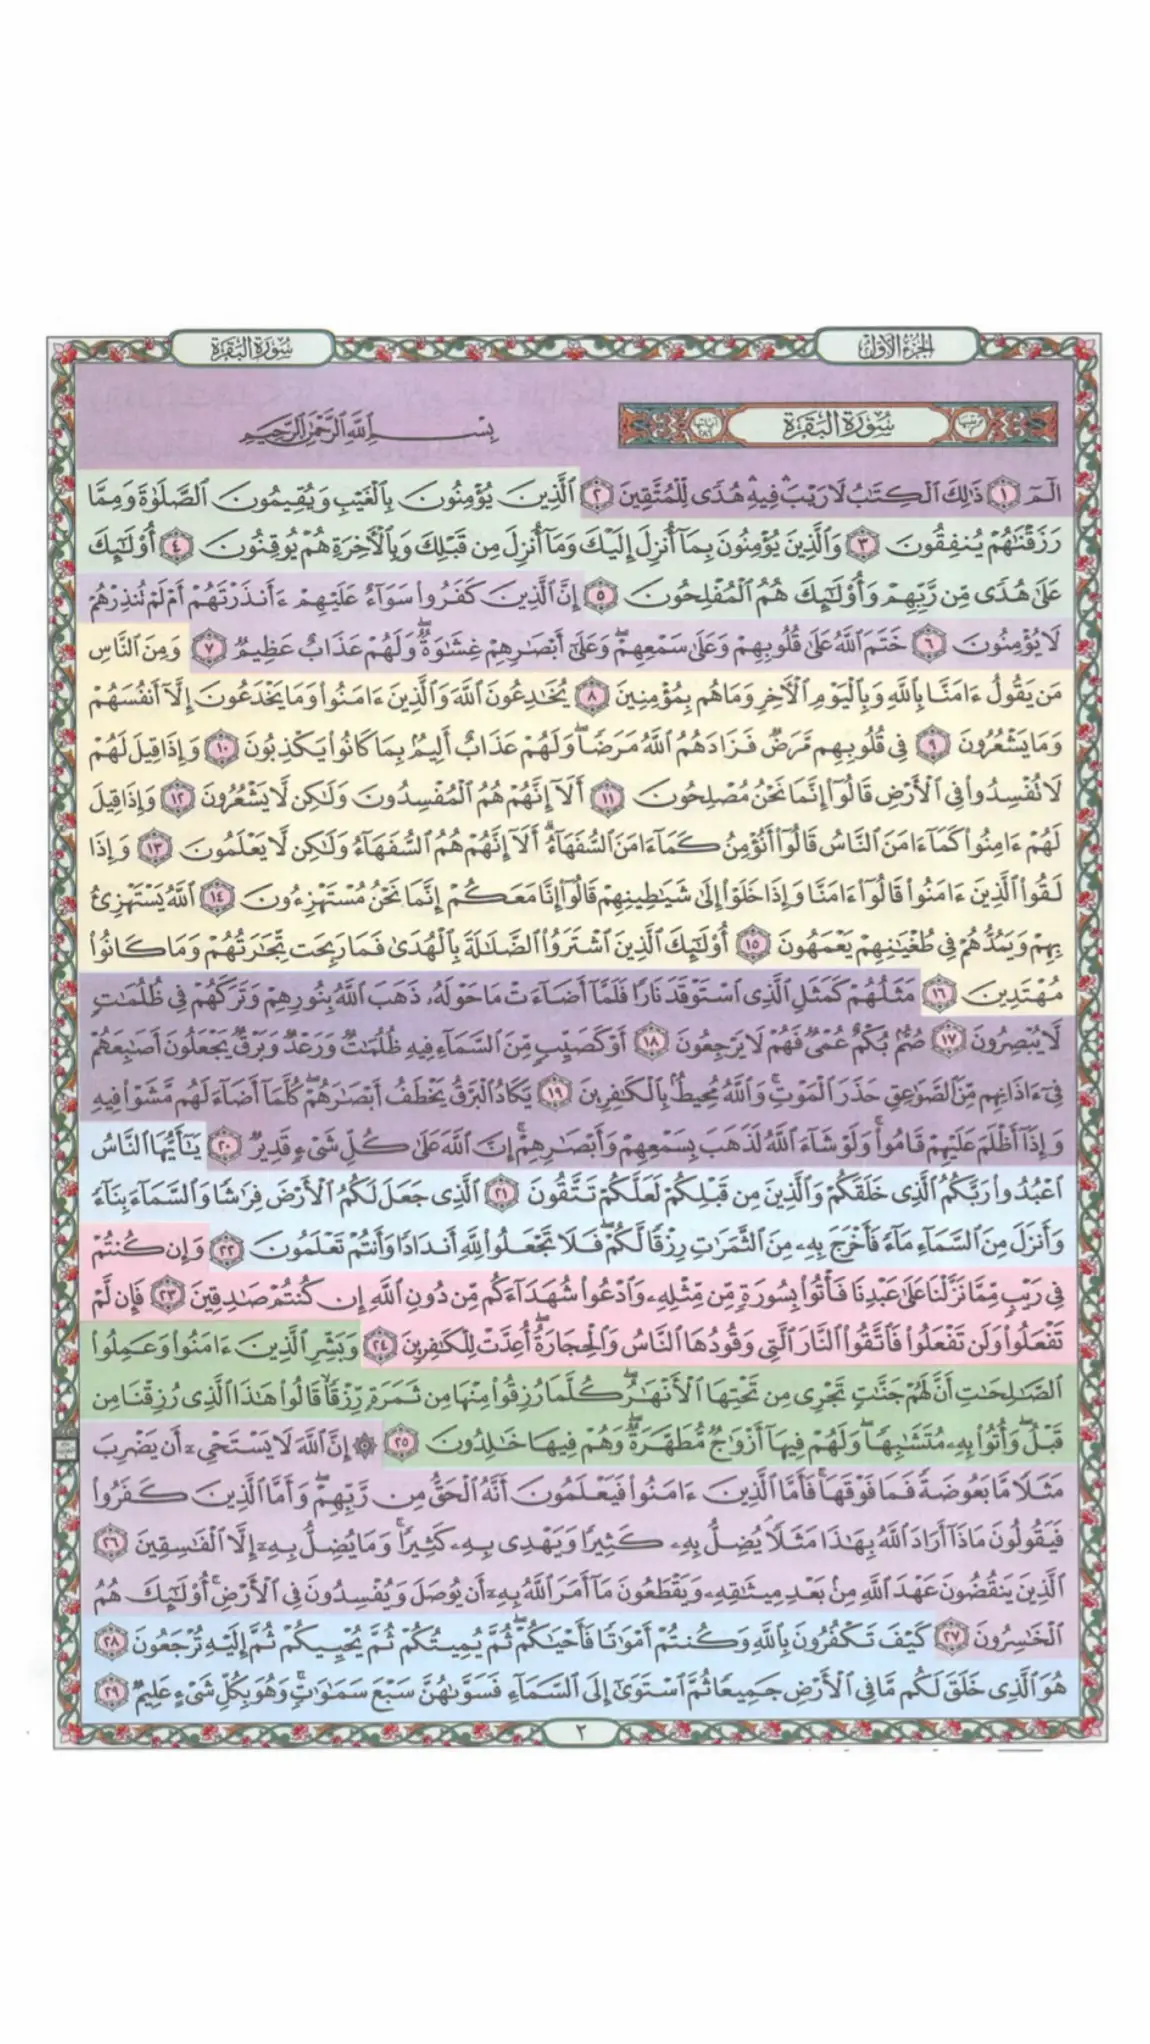 الجزء الأول
سورة البقرة
ترتيبها ٢ سورة البقرة آياتها ٢٨٦ بِسْمِ ٱللَّهِ ٱلرَّحْمَٰنِ ٱلرَّحِيمِ
الٓمٓ ١ ذَٰلِكَ ٱلْكِتَٰبُ لَا رَيْبَ ۛ فِيهِ ۛ هُدًى لِّلْمُتَّقِينَ ٢ ٱلَّذِينَ يُؤْمِنُونَ بِٱلْغَيْبِ وَيُقِيمُونَ ٱلصَّلَوٰةَ وَمِمَّا
رَزَقْنَٰهُمْ يُنفِقُونَ ٣ وَٱلَّذِينَ يُؤْمِنُونَ بِمَآ أُنزِلَ إِلَيْكَ وَمَآ أُنزِلَ مِن قَبْلِكَ وَبِٱلْءَاخِرَةِ هُمْ يُوقِنُونَ ٤ أُو۟لَٰٓئِكَ
عَلَىٰ هُدًى مِّن رَّبِّهِمْ وَأُو۟لَٰٓئِكَ هُمُ ٱلْمُفْلِحُونَ ٥ إِنَّ ٱلَّذِينَ كَفَرُوا۟ سَوَآءٌ عَلَيْهِمْ ءَأَنذَرْتَهُمْ أَمْ لَمْ تُنذِرْهُمْ
لَا يُؤْمِنُونَ ٦ خَتَمَ ٱللَّهُ عَلَىٰ قُلُوبِهِمْ وَعَلَىٰ سَمْعِهِمْ ۖ وَعَلَىٰٓ أَبْصَٰرِهِمْ غِشَٰوَةٌ ۖ وَلَهُمْ عَذَابٌ عَظِيمٌ ٧ وَمِنَ ٱلنَّاسِ
مَن يَقُولُ ءَامَنَّا بِٱللَّهِ وَبِٱلْيَوْمِ ٱلْءَاخِرِ وَمَا هُم بِمُؤْمِنِينَ ٨ يُخَٰدِعُونَ ٱللَّهَ وَٱلَّذِينَ ءَامَنُوا۟ وَمَا يَخْدَعُونَ إِلَّآ أَنفُسَهُمْ
وَمَا يَشْعُرُونَ ٩ فِى قُلُوبِهِم مَّرَضٌ فَزَادَهُمُ ٱللَّهُ مَرَضًا ۖ وَلَهُمْ عَذَابٌ أَلِيمٌۢ بِمَا كَانُوا۟ يَكْذِبُونَ ١٠ وَإِذَا قِيلَ لَهُمْ
لَا تُفْسِدُوا۟ فِى ٱلْأَرْضِ قَالُوٓا۟ إِنَّمَا نَحْنُ مُصْلِحُونَ ١١ أَلَآ إِنَّهُمْ هُمُ ٱلْمُفْسِدُونَ وَلَٰكِن لَّا يَشْعُرُونَ ١٢ وَإِذَا قِيلَ
لَهُمْ ءَامِنُوا۟ كَمَآ ءَامَنَ ٱلنَّاسُ قَالُوٓا۟ أَنُؤْمِنُ كَمَآ ءَامَنَ ٱلسُّفَهَآءُ ۗ أَلَآ إِنَّهُمْ هُمُ ٱلسُّفَهَآءُ وَلَٰكِن لَّا يَعْلَمُونَ ١٣ وَإِذَا
لَقُوا۟ ٱلَّذِينَ ءَامَنُوا۟ قَالُوٓا۟ ءَامَنَّا وَإِذَا خَلَوْا۟ إِلَىٰ شَيَٰطِينِهِمْ قَالُوٓا۟ إِنَّا مَعَكُمْ إِنَّمَا نَحْنُ مُسْتَهْزِءُونَ ١٤ ٱللَّهُ يَسْتَهْزِئُ
بِهِمْ وَيَمُدُّهُمْ فِى طُغْيَٰنِهِمْ يَعْمَهُونَ ١٥ أُو۟لَٰٓئِكَ ٱلَّذِينَ ٱشْتَرَوُا۟ ٱلضَّلَٰلَةَ بِٱلْهُدَىٰ فَمَا رَبِحَت تِّجَٰرَتُهُمْ وَمَا كَانُوا۟
مُهْتَدِينَ ١٦ مَثَلُهُمْ كَمَثَلِ ٱلَّذِى ٱسْتَوْقَدَ نَارًا فَلَمَّآ أَضَآءَتْ مَا حَوْلَهُۥ ذَهَبَ ٱللَّهُ بِنُورِهِمْ وَتَرَكَهُمْ فِى ظُلُمَٰتٍ
لَّا يُبْصِرُونَ ١٧ صُمٌّۢ بُكْمٌ عُمْىٌ فَهُمْ لَا يَرْجِعُونَ ١٨ أَوْ كَصَيِّبٍ مِّنَ ٱلسَّمَآءِ فِيهِ ظُلُمَٰتٌ وَرَعْدٌ وَبَرْقٌ يَجْعَلُونَ أَصَٰبِعَهُمْ
فِىٓ ءَاذَانِهِم مِّنَ ٱلصَّوَٰعِقِ حَذَرَ ٱلْمَوْتِ ۚ وَٱللَّهُ مُحِيطٌۢ بِٱلْكَٰفِرِينَ ١٩ يَكَادُ ٱلْبَرْقُ يَخْطَفُ أَبْصَٰرَهُمْ ۖ كُلَّمَآ أَضَآءَ لَهُم مَّشَوْا۟ فِيهِ
وَإِذَآ أَظْلَمَ عَلَيْهِمْ قَامُوا۟ ۚ وَلَوْ شَآءَ ٱللَّهُ لَذَهَبَ بِسَمْعِهِمْ وَأَبْصَٰرِهِمْ ۚ إِنَّ ٱللَّهَ عَلَىٰ كُلِّ شَىْءٍ قَدِيرٌ ٢٠ يَٰٓأَيُّهَا ٱلنَّاسُ
ٱعْبُدُوا۟ رَبَّكُمُ ٱلَّذِى خَلَقَكُمْ وَٱلَّذِينَ مِن قَبْلِكُمْ لَعَلَّكُمْ تَتَّقُونَ ٢١ ٱلَّذِى جَعَلَ لَكُمُ ٱلْأَرْضَ فِرَٰشًا وَٱلسَّمَآءَ بِنَآءً
وَأَنزَلَ مِنَ ٱلسَّمَآءِ مَآءً فَأَخْرَجَ بِهِۦ مِنَ ٱلثَّمَرَٰتِ رِزْقًا لَّكُمْ ۖ فَلَا تَجْعَلُوا۟ لِلَّهِ أَندَادًا وَأَنتُمْ تَعْلَمُونَ ٢٢ وَإِن كُنتُمْ
فِى رَيْبٍ مِّمَّا نَزَّلْنَا عَلَىٰ عَبْدِنَا فَأْتُوا۟ بِسُورَةٍ مِّن مِّثْلِهِۦ وَٱدْعُوا۟ شُهَدَآءَكُم مِّن دُونِ ٱللَّهِ إِن كُنتُمْ صَٰدِقِينَ ٢٣ فَإِن لَّمْ
تَفْعَلُوا۟ وَلَن تَفْعَلُوا۟ فَٱتَّقُوا۟ ٱلنَّارَ ٱلَّتِى وَقُودُهَا ٱلنَّاسُ وَٱلْحِجَارَةُ ۖ أُعِدَّتْ لِلْكَٰفِرِينَ ٢٤ وَبَشِّرِ ٱلَّذِينَ ءَامَنُوا۟ وَعَمِلُوا۟
ٱلصَّٰلِحَٰتِ أَنَّ لَهُمْ جَنَّٰتٍ تَجْرِى مِن تَحْتِهَا ٱلْأَنْهَٰرُ ۖ كُلَّمَا رُزِقُوا۟ مِنْهَا مِن ثَمَرَةٍ رِّزْقًا ۙ قَالُوا۟ هَٰذَا ٱلَّذِى رُزِقْنَا مِن
قَبْلُ ۖ وَأُتُوا۟ بِهِۦ مُتَشَٰبِهًا ۖ وَلَهُمْ فِيهَآ أَزْوَٰجٌ مُّطَهَّرَةٌ ۖ وَهُمْ فِيهَا خَٰلِدُونَ ٢٥ ۞ إِنَّ ٱللَّهَ لَا يَسْتَحْىِۦٓ أَن يَضْرِبَ
مَثَلًا مَّا بَعُوضَةً فَمَا فَوْقَهَا ۚ فَأَمَّا ٱلَّذِينَ ءَامَنُوا۟ فَيَعْلَمُونَ أَنَّهُ ٱلْحَقُّ مِن رَّبِّهِمْ ۖ وَأَمَّا ٱلَّذِينَ كَفَرُوا۟
فَيَقُولُونَ مَاذَآ أَرَادَ ٱللَّهُ بِهَٰذَا مَثَلًا ۘ يُضِلُّ بِهِۦ كَثِيرًا وَيَهْدِى بِهِۦ كَثِيرًا ۚ وَمَا يُضِلُّ بِهِۦٓ إِلَّا ٱلْفَٰسِقِينَ ٢٦
ٱلَّذِينَ يَنقُضُونَ عَهْدَ ٱللَّهِ مِنۢ بَعْدِ مِيثَٰقِهِۦ وَيَقْطَعُونَ مَآ أَمَرَ ٱللَّهُ بِهِۦٓ أَن يُوصَلَ وَيُفْسِدُونَ فِى ٱلْأَرْضِ ۚ أُو۟لَٰٓئِكَ هُمُ
ٱلْخَٰسِرُونَ ٢٧ كَيْفَ تَكْفُرُونَ بِٱللَّهِ وَكُنتُمْ أَمْوَٰتًا فَأَحْيَٰكُمْ ۖ ثُمَّ يُمِيتُكُمْ ثُمَّ يُحْيِيكُمْ ثُمَّ إِلَيْهِ تُرْجَعُونَ ٢٨
هُوَ ٱلَّذِى خَلَقَ لَكُم مَّا فِى ٱلْأَرْضِ جَمِيعًا ثُمَّ ٱسْتَوَىٰٓ إِلَى ٱلسَّمَآءِ فَسَوَّىٰهُنَّ سَبْعَ سَمَٰوَٰتٍ ۚ وَهُوَ بِكُلِّ شَىْءٍ عَلِيمٌ ٢٩
٢